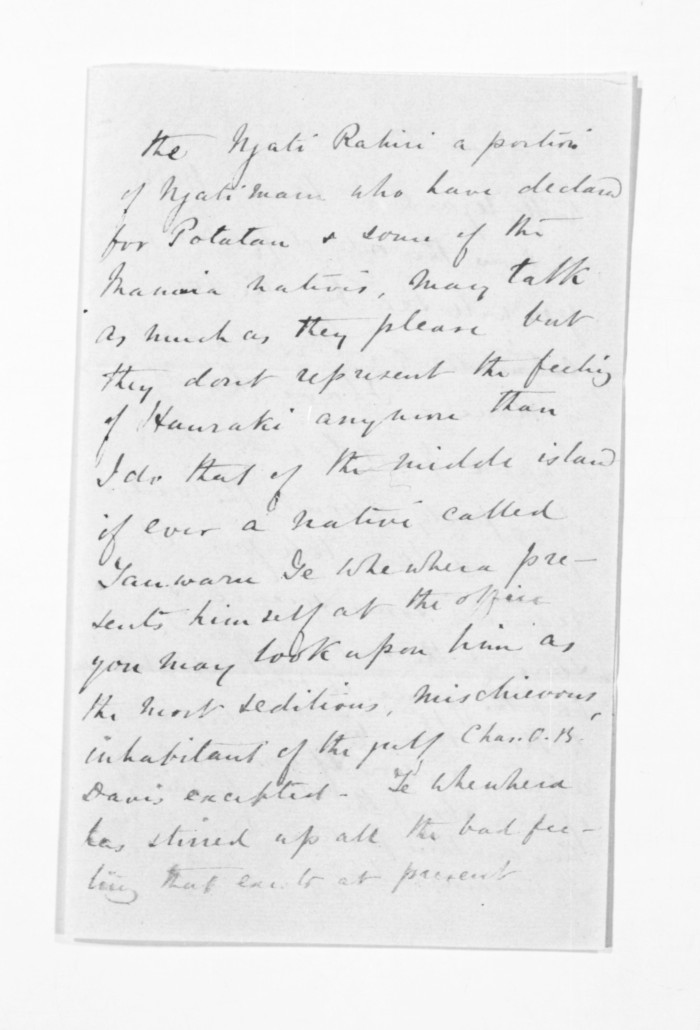 the Ngati Rahiri a portion
of Ngatimaru who have declared
for Potatau & some of the
Manaia natives, may talk
as much as they please but
they dont represent the feeling
of Hauraki anymore than
I do that of the middle island
if ever a native called
Tauwaru Te Whewhera pre-
sents himself at the office
you may look upon him as
the most seditious, mischievous,
inhabitant of the gulf Chas. O. B.
Davis excepted - Te Whewhera
has stirred up all the bad fee-
ling that exists at present